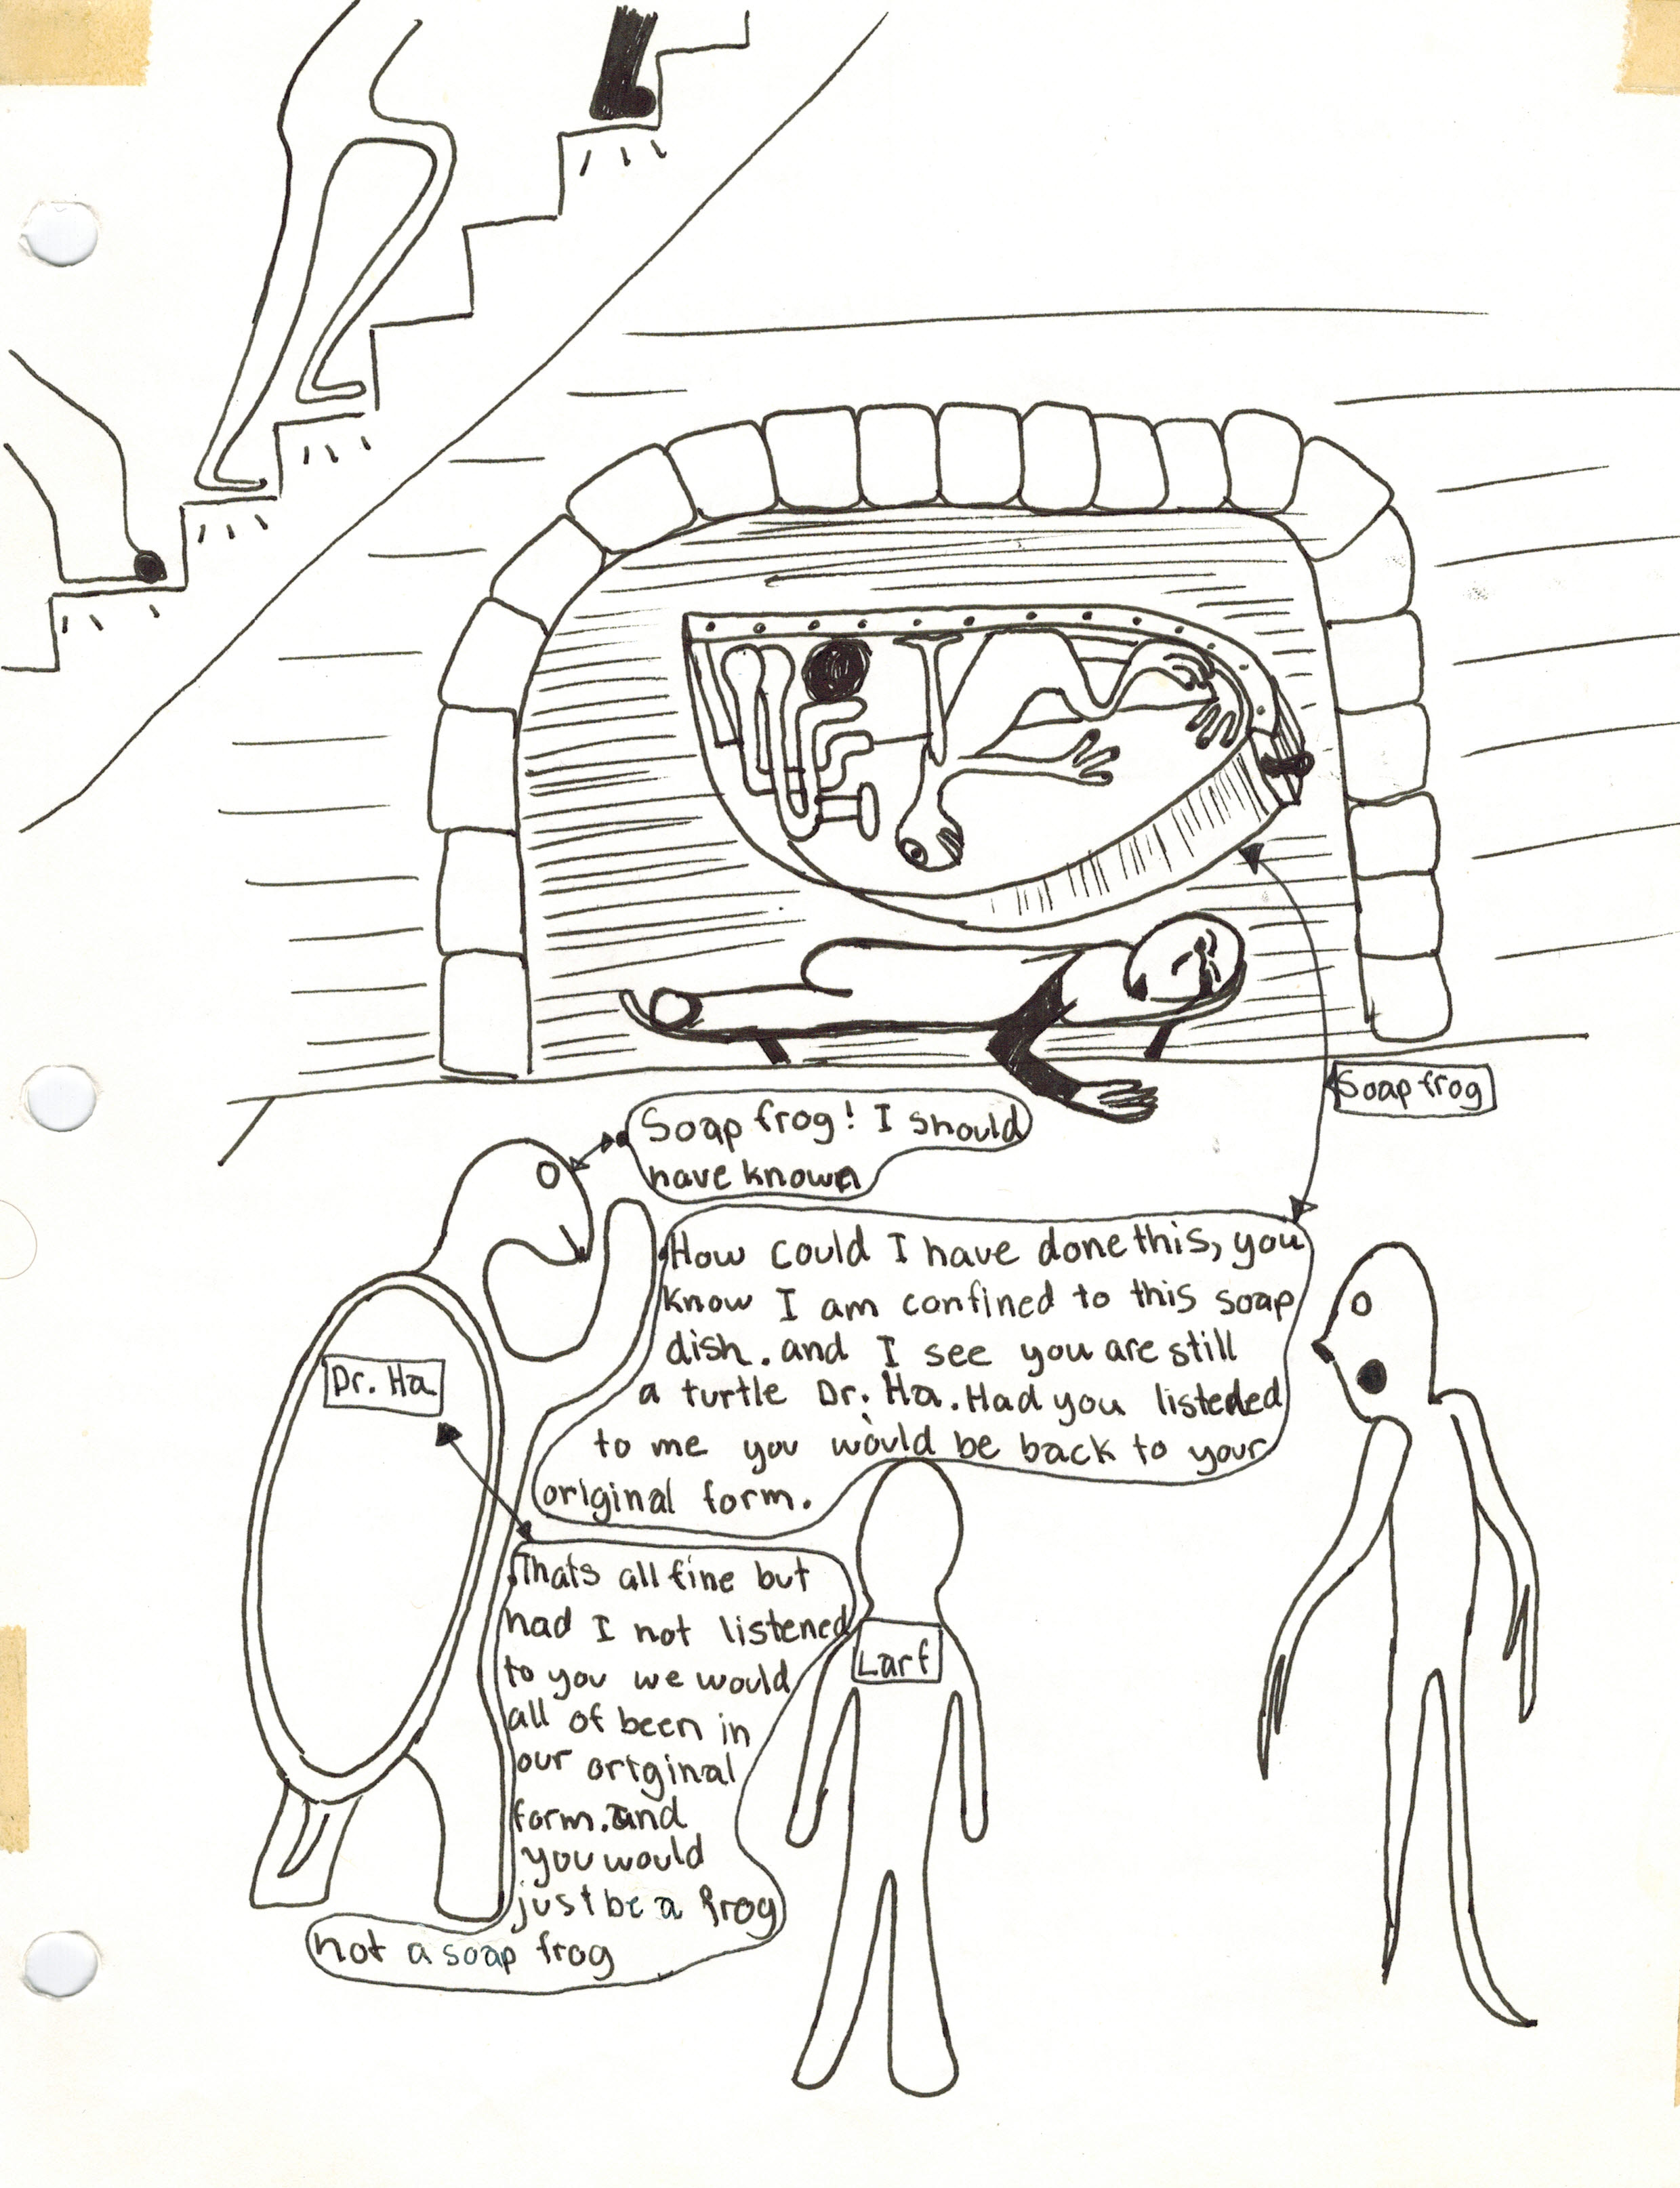 Soap frog
Soap frog! I should
have known
How could I have done this, you
know I am confined to this soap
dish. and I see you are still
a turtle Dr. Ha. Had you listeded
to me you would be back to your
original form.
Dr. Ha
Thats all fine but
had I not listened
to you we would
all of been in
our original
form. and
you would
just be a frog
not a soap frog
Larf